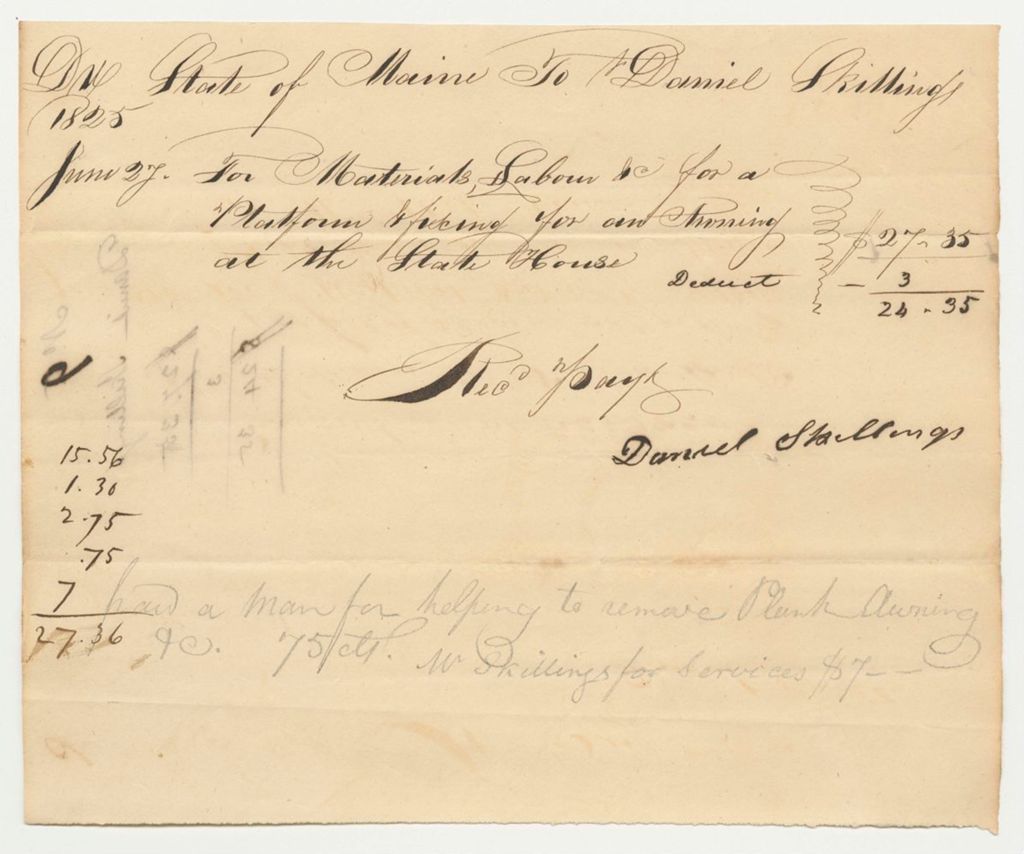 Dr State of Maine To Daniel Skillings
1825
June 27. For Materials, Labour &c for a
Platform & fixing for an Awning $27-35
at the State House
Deduct - 3
24-35
Recd Payt
Daniel Skillings
15.56
1.30
2.75
.75
7
27.36
paid a man for helping to remove Plank Awning
&c. 75 cts. Mr Skillings for Services $7-
Daniel Skillings
$ 27.35
3
$ 24.35